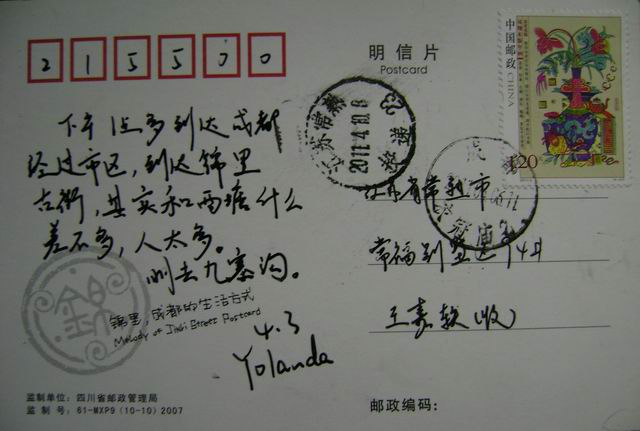 215500
明信片
Postcard
中国邮政
CHINA
120
江苏常熟
2011.4.10.18
下午1点多到达成都
经过市区,到达锦里
古街,其实和西塘什么
差不多,人太多。
刚去九寨沟。
锦里,成都的生活方式
Melody of Jinli Street Postcard
4.3
Yolanda
江苏省常熟市
常福别墅区
(收)
监制单位:四川省邮政管理局
监 制 号:61-MXP9(10-10)2007
邮政编码: